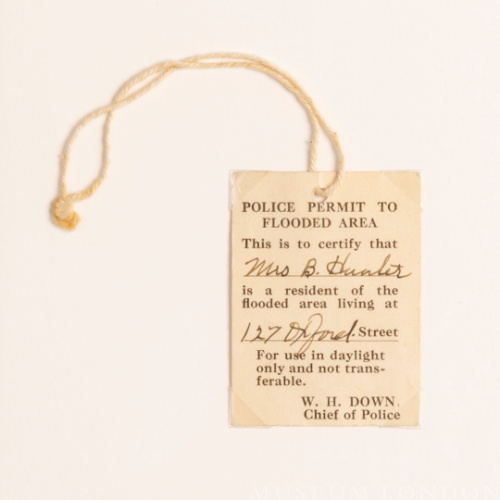 POLICE PERMIT TO
FLOODED AREA
This is to certify that
Mrs B. Hunter
is a resident of the
flooded area living at
127 Oxford. Street
For use in daylight
only and not trans-
ferable.
W. H. DOWN.
Chief of Police
MUSEUM LONDON